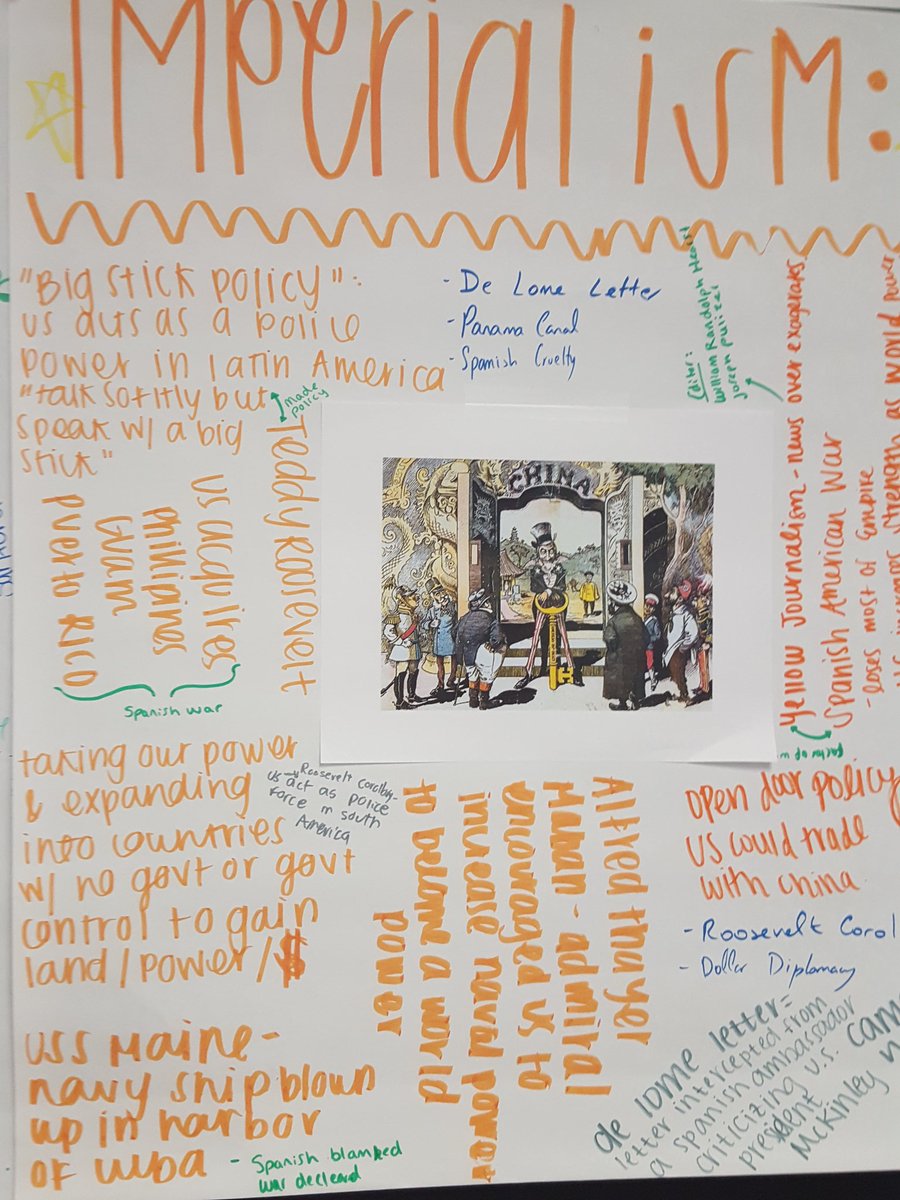 IMPerialisM:
"Big stick policy":
us acts as a police
power in latin America
"talk sofitly but
speak w/ a big
stick"
made
policy
Teddy Roosevelt
- De Lome Letter
- Panama Canal
- Spanish Cruelty
Editor:
William Randolph Hearst
Joseph Pulitzer
Yellow Journalism - news over exagerates
Spanish American War
- loses most of Empire
strength as world power
CHINA
us aquires
Phillipines
Guam
Puerto Rico
Spanish war
taking our power
& expanding
into countries
w/ no govt or govt
control to gain
land/power/$
Roosevelt
us act as police
force in south
America
Alfred thayer
Mahan - admiral
encouraged us to
increase naval power
to become a world
power
open door policy
US could trade
with china
- Roosevelt Corol
- Dollar Diplomacy
USS Maine-
navy ship blown
up in harbor
of cuba
- Spanish blamked
war declerd
de lome letter=
letter intercepted from
a spanish ambassador
criticizing u.s.
president
McKinley